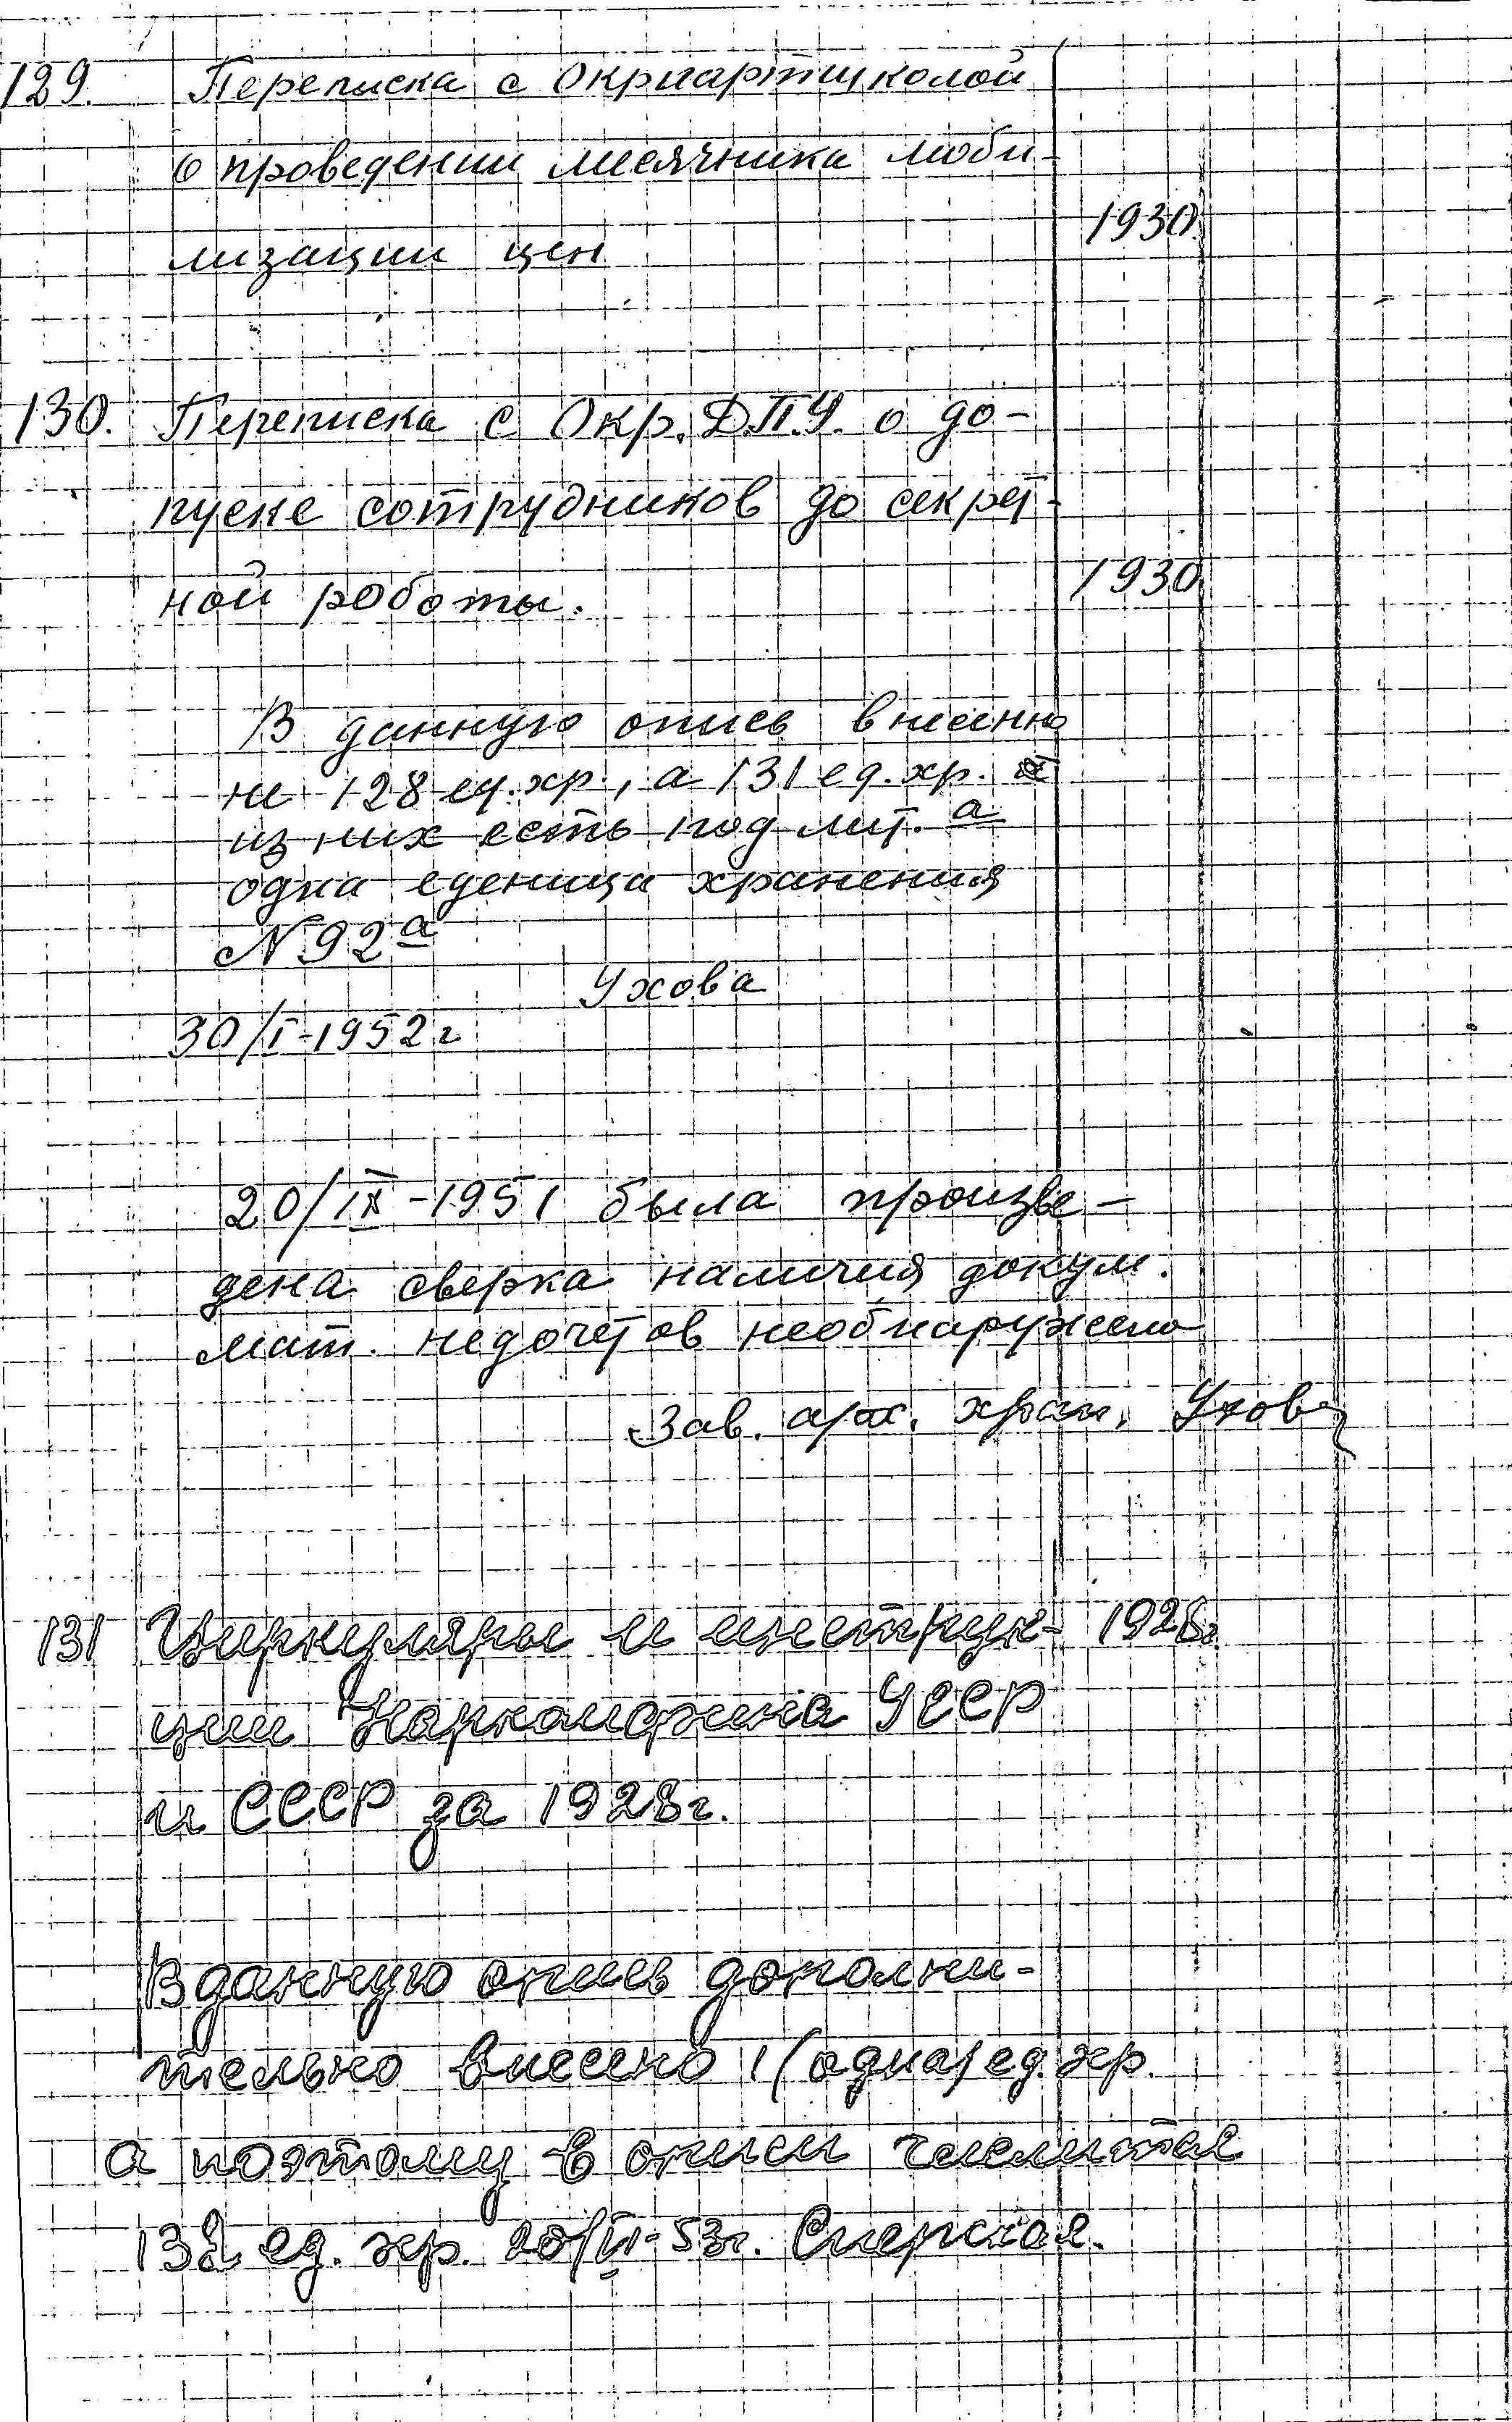 129. Переписка с Окрпартшколой
о проведении месячника моби-
лизации цен
1930.
130. Переписка с Окр. Д.П.У. о до-
пуске сотрудников до секрет-
ной роботы.
1930
В данную опись внесенно
не 128 ед.хр., а 131 ед.хр.
из них есть под лит. а
одна еденица хранения
N 92а
Ухова
30/I-1952г
20/IX-1951 была произве-
дена сверка наличия докум.
мат. недочетов необнаружено
Зав. арх. хран. Ухова
131 Циркуляры и инструк- 1928г.
ции Наркомфина УССР
и СССР за 1928г.
В данную опись дополни-
тельно внесено 1 (одна) ед. хр.
а поэтому в описи числится
132 ед. хр. 20/VI-53г.